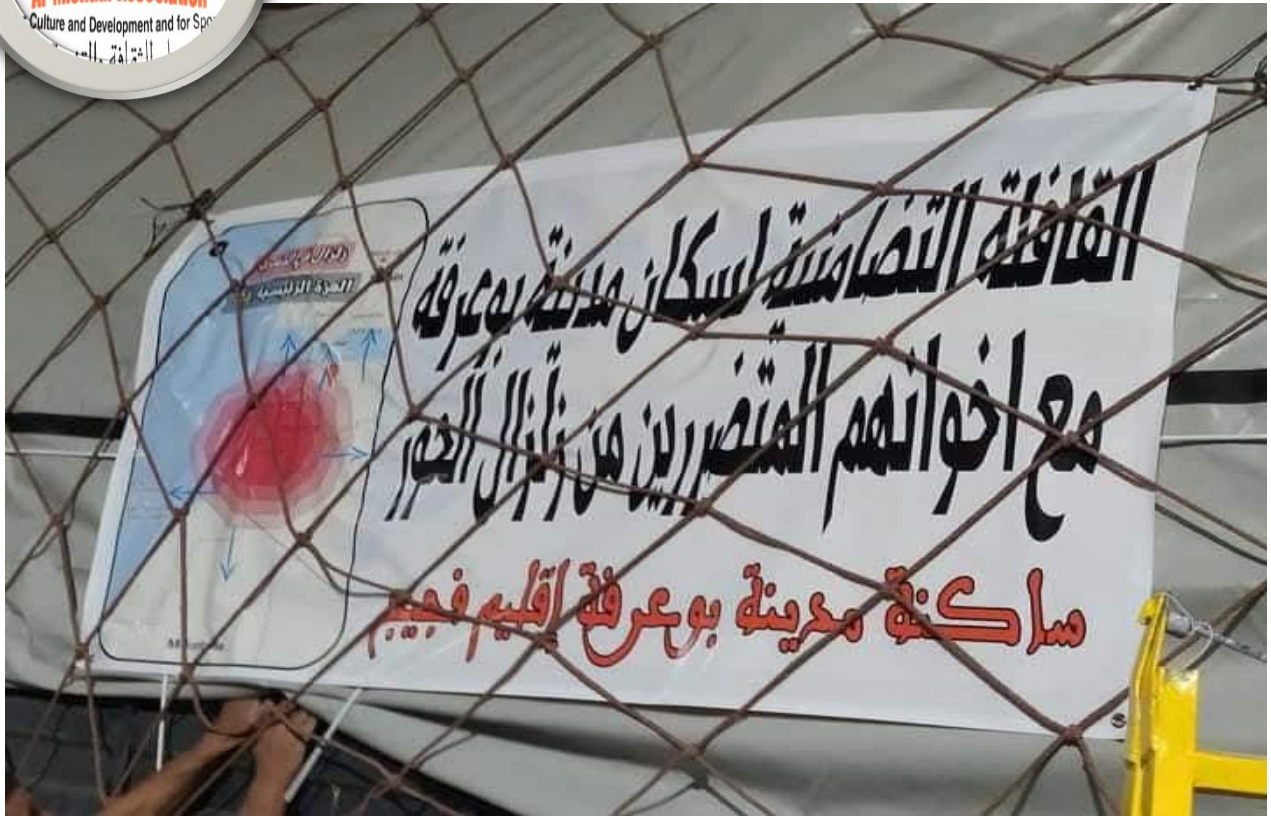 Culture and Development and for
القافلة التضامنية لسكان مدينة بوعرفة
مع اخوانهم المتضررين من زلزال الحوز
ساكنة مدينة بوعرفة إقليم فجيج
الهزة الرئيسية